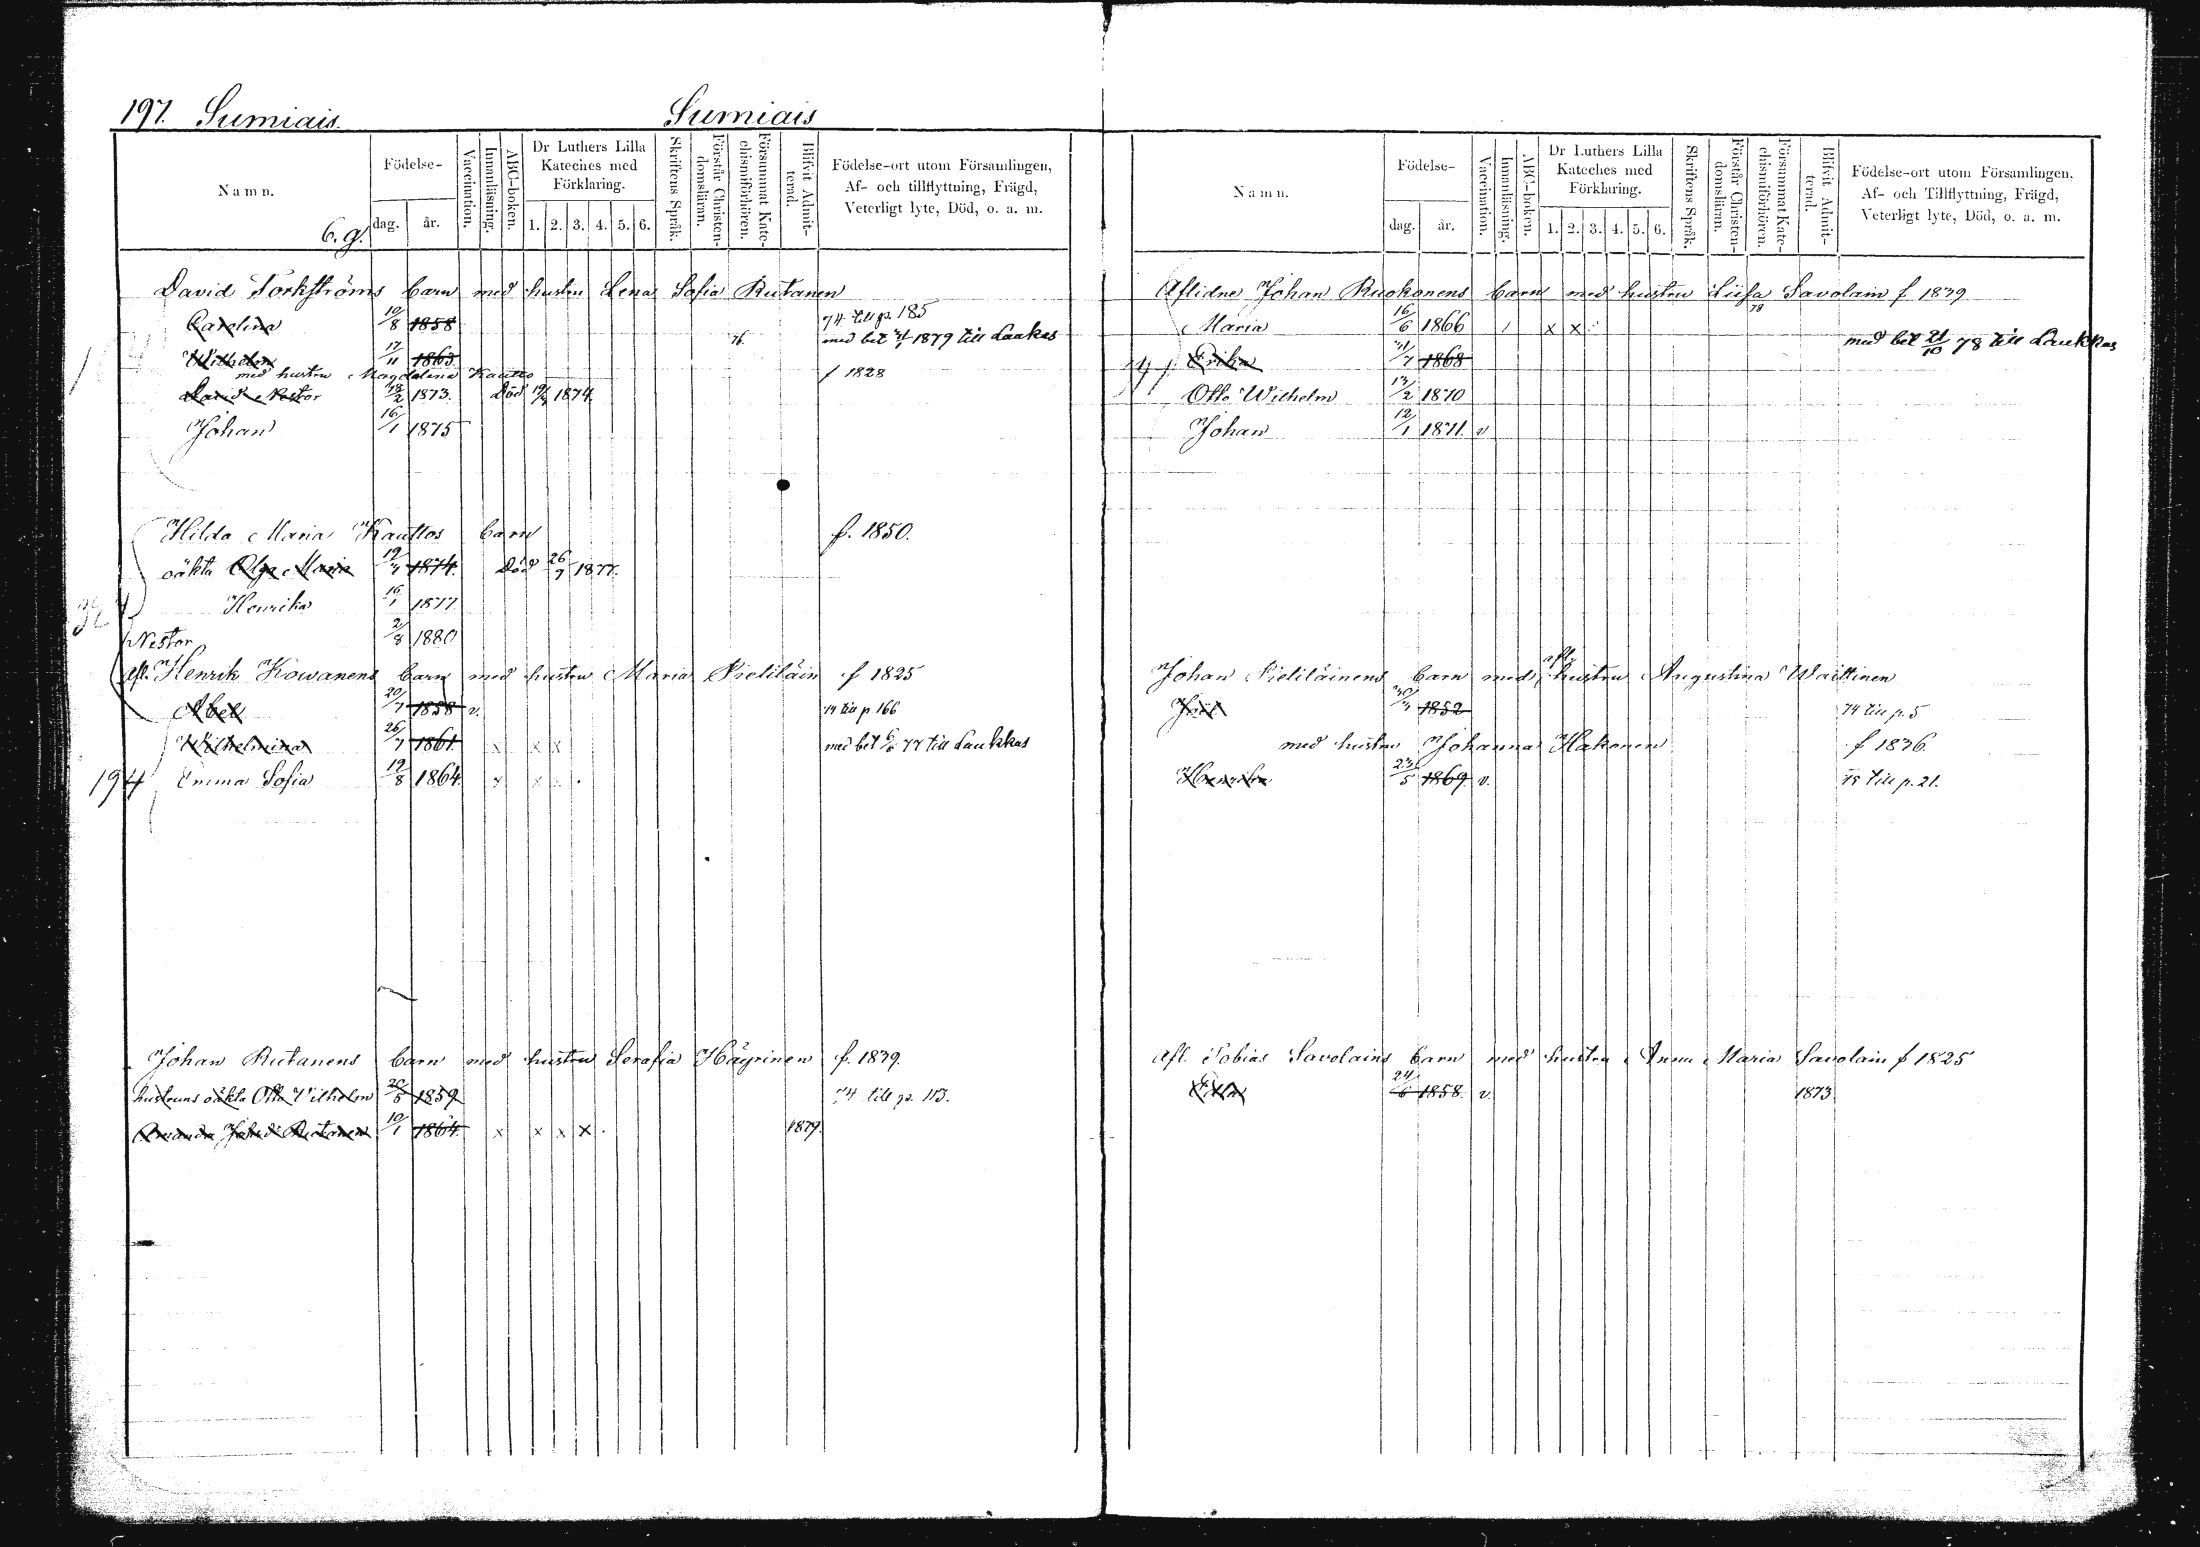 197. Sumiais.
Sumiais
Namn.
Födelse-
dag.
år.
Vaccination.
Innanläsning.
ABC-boken.
Dr Luthers Lilla
Kateches med
Förklaring.
1. 2. 3. 4. 5. 6.
Skriftens Språk.
Förstår Christen-
domsläran.
Försummat Kate-
chismiförhören.
Blifvit Admit-
terad.
Födelse-ort utom Församlingen,
Af- och tillflyttning, Frägd,
Veterligt lyte, Död, o. a. m.
6. g.
David Torkströms barn med hustru Lena Sofia Rutanen
Carolina 10/8 1858 74 till p. 185
Wilhelm 17/11 1863 76. med bet 1879 till Laukas
med hustru Magdalena Kautto f 1828
David Nestor 18/2 1873. Död 1874.
Johan 16/1 1875
Hilda Maria Kauttos barn f. 1850.
oäkta Olga Maria 1874. Död 26/9 1877.
Henrika 16/1 1877
Nestor 2/8 1880
afl. Henrik Kowanens barn med hustru Maria Pieliläin f 1825
Abel 20/7 1858 v. 74 till p 166
Wilhelmina 26/7 1861 x x x med bet 77 till Laukkas
194 Emma Sofia 19/8 1864 x x x .
Johan Rutanens barn med hustru Serafia Häyrinen f. 1839.
hustruns oäkta Otto Vilhelm 20/5 1859 74 till p. 113.
Amanda Rutanen 10/1 1864. x x x x . 1879.
Namn.
Födelse-
dag.
år.
Vaccination.
Innanläsning.
ABC-boken.
Dr Luthers Lilla
Kateches med
Förklaring.
1. 2. 3. 4. 5. 6.
Skriftens Språk.
Förstår Christen-
domsläran.
Försummat Kate-
chismiförhören.
Blifvit Admit-
terad.
Födelse-ort utom Församlingen,
Af- och Tillflyttning, Frägd,
Veterligt lyte, Död, o. a. m.
Aflidne Johan Ruokonens barn med hustru Liisa Savolain f 1839
Maria 16/6 1866 / x x 78 med bet 21/10 78 till Laukkas
Erika 1868
Otto Wilhelm 13/2 1870
Johan 12/1 1871. v
Johan Pieliläinens barn med afl. hustru Augustina Waittinen
Joel 1852 74 till p. 5
med hustru Johanna Hakonen f 1836.
Henrika 23/5 1869 v. 75 till p. 21.
afl. Tobias Savolains barn med hustru Anna Maria Savolain f 1825
24/6 1858. v. 1873.